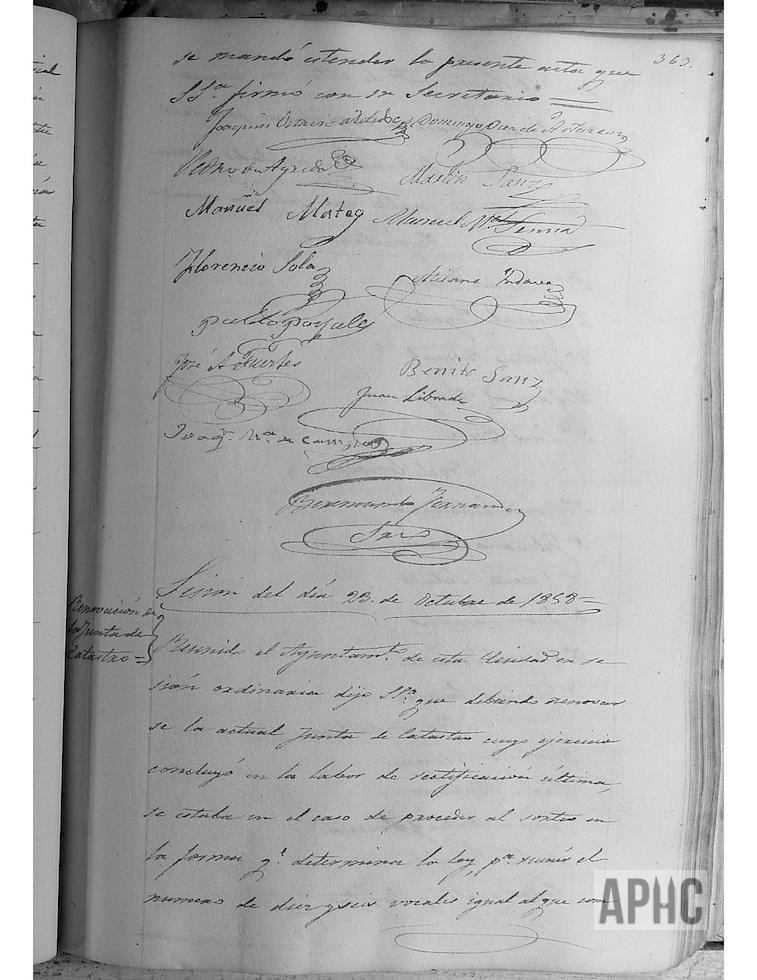 363.
se mandó estender la presente acta que
SSª firmó con su Secretario =
Joaquin Domingo Diez de
Pedro de Agreda Martin Sanz
Manuel Mateo Manuel Mª Senna
Florencio Sola
Pablo
José A Fuertes Benito Sanz
Juan Librada
Joaqⁿ Mª de
Beremundo Fernandez
Saro
Sesion del dia 23. de Octubre de 1858 =
Renovacion de
la Junta de
Catastro =
Reunido el Ayuntamᵗᵒ de esta Ciudad en se
sion ordinaria dijo SSª que debiendo renovar
se la actual Junta de Catastro cuyo ejercicio
concluyó en la labor de rectificacion última,
se estaba en el caso de proceder al sorteo en
la forma qᵉ determina la ley, pª reunir el
numero de diez y seis vocales igual al que com
APHC